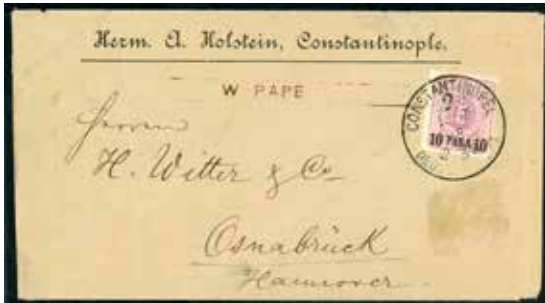 Herm. A. Holstein, Constantinople.
W PAPE
CONSTANTINOPEL
10 PARA 10
Herren
H. Witter & Co
Osnabrück
Hannover